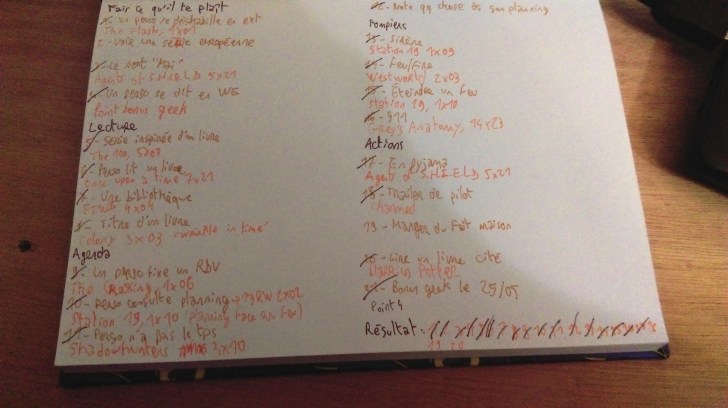 Fair ce qu'il te plaît
1 - un perso se déshabille en ext
The Flash, 1x01
2 - Voir une série européenne
3 - Le mot "Mai"
Agents of S.H.I.E.L.D 5x21
4 - Un perso se dit en WE
Point bonus geek
Lecture
5 - Série inspirée d'un livre
The 100, 5x03
6 - Perso lit un livre
Once upon a time 7x21
7 - Une bibliothèque
4x04
8 - Titre d'un livre
Colony 3x03
Agenda
9 - Un perso fixe un RDV
The Crossing, 1x06
10 - Perso consulte planning
Station 19, 1x10 (planning face au feu)
11 - Perso n'a pas le tps
Shadowhunters 3x10
12 - Note qq chose ds son planning
Pompiers
13 - Sirène
Station 19 1x09
14 - Feu/Fire
Westworld 2x03
15 - Éteindre un feu
Station 19, 1x10
16 - 911
Grey's Anatomy, 14x23
Actions
17 - En pyjama
Agents of S.H.I.E.L.D 5x21
18 - Trailer de pilot
Charmed
19 - Manger du fait maison
20 - Lire un livre cité
Harry Potter
21 - Bonus geek le 25/05
Point 4
Résultat :